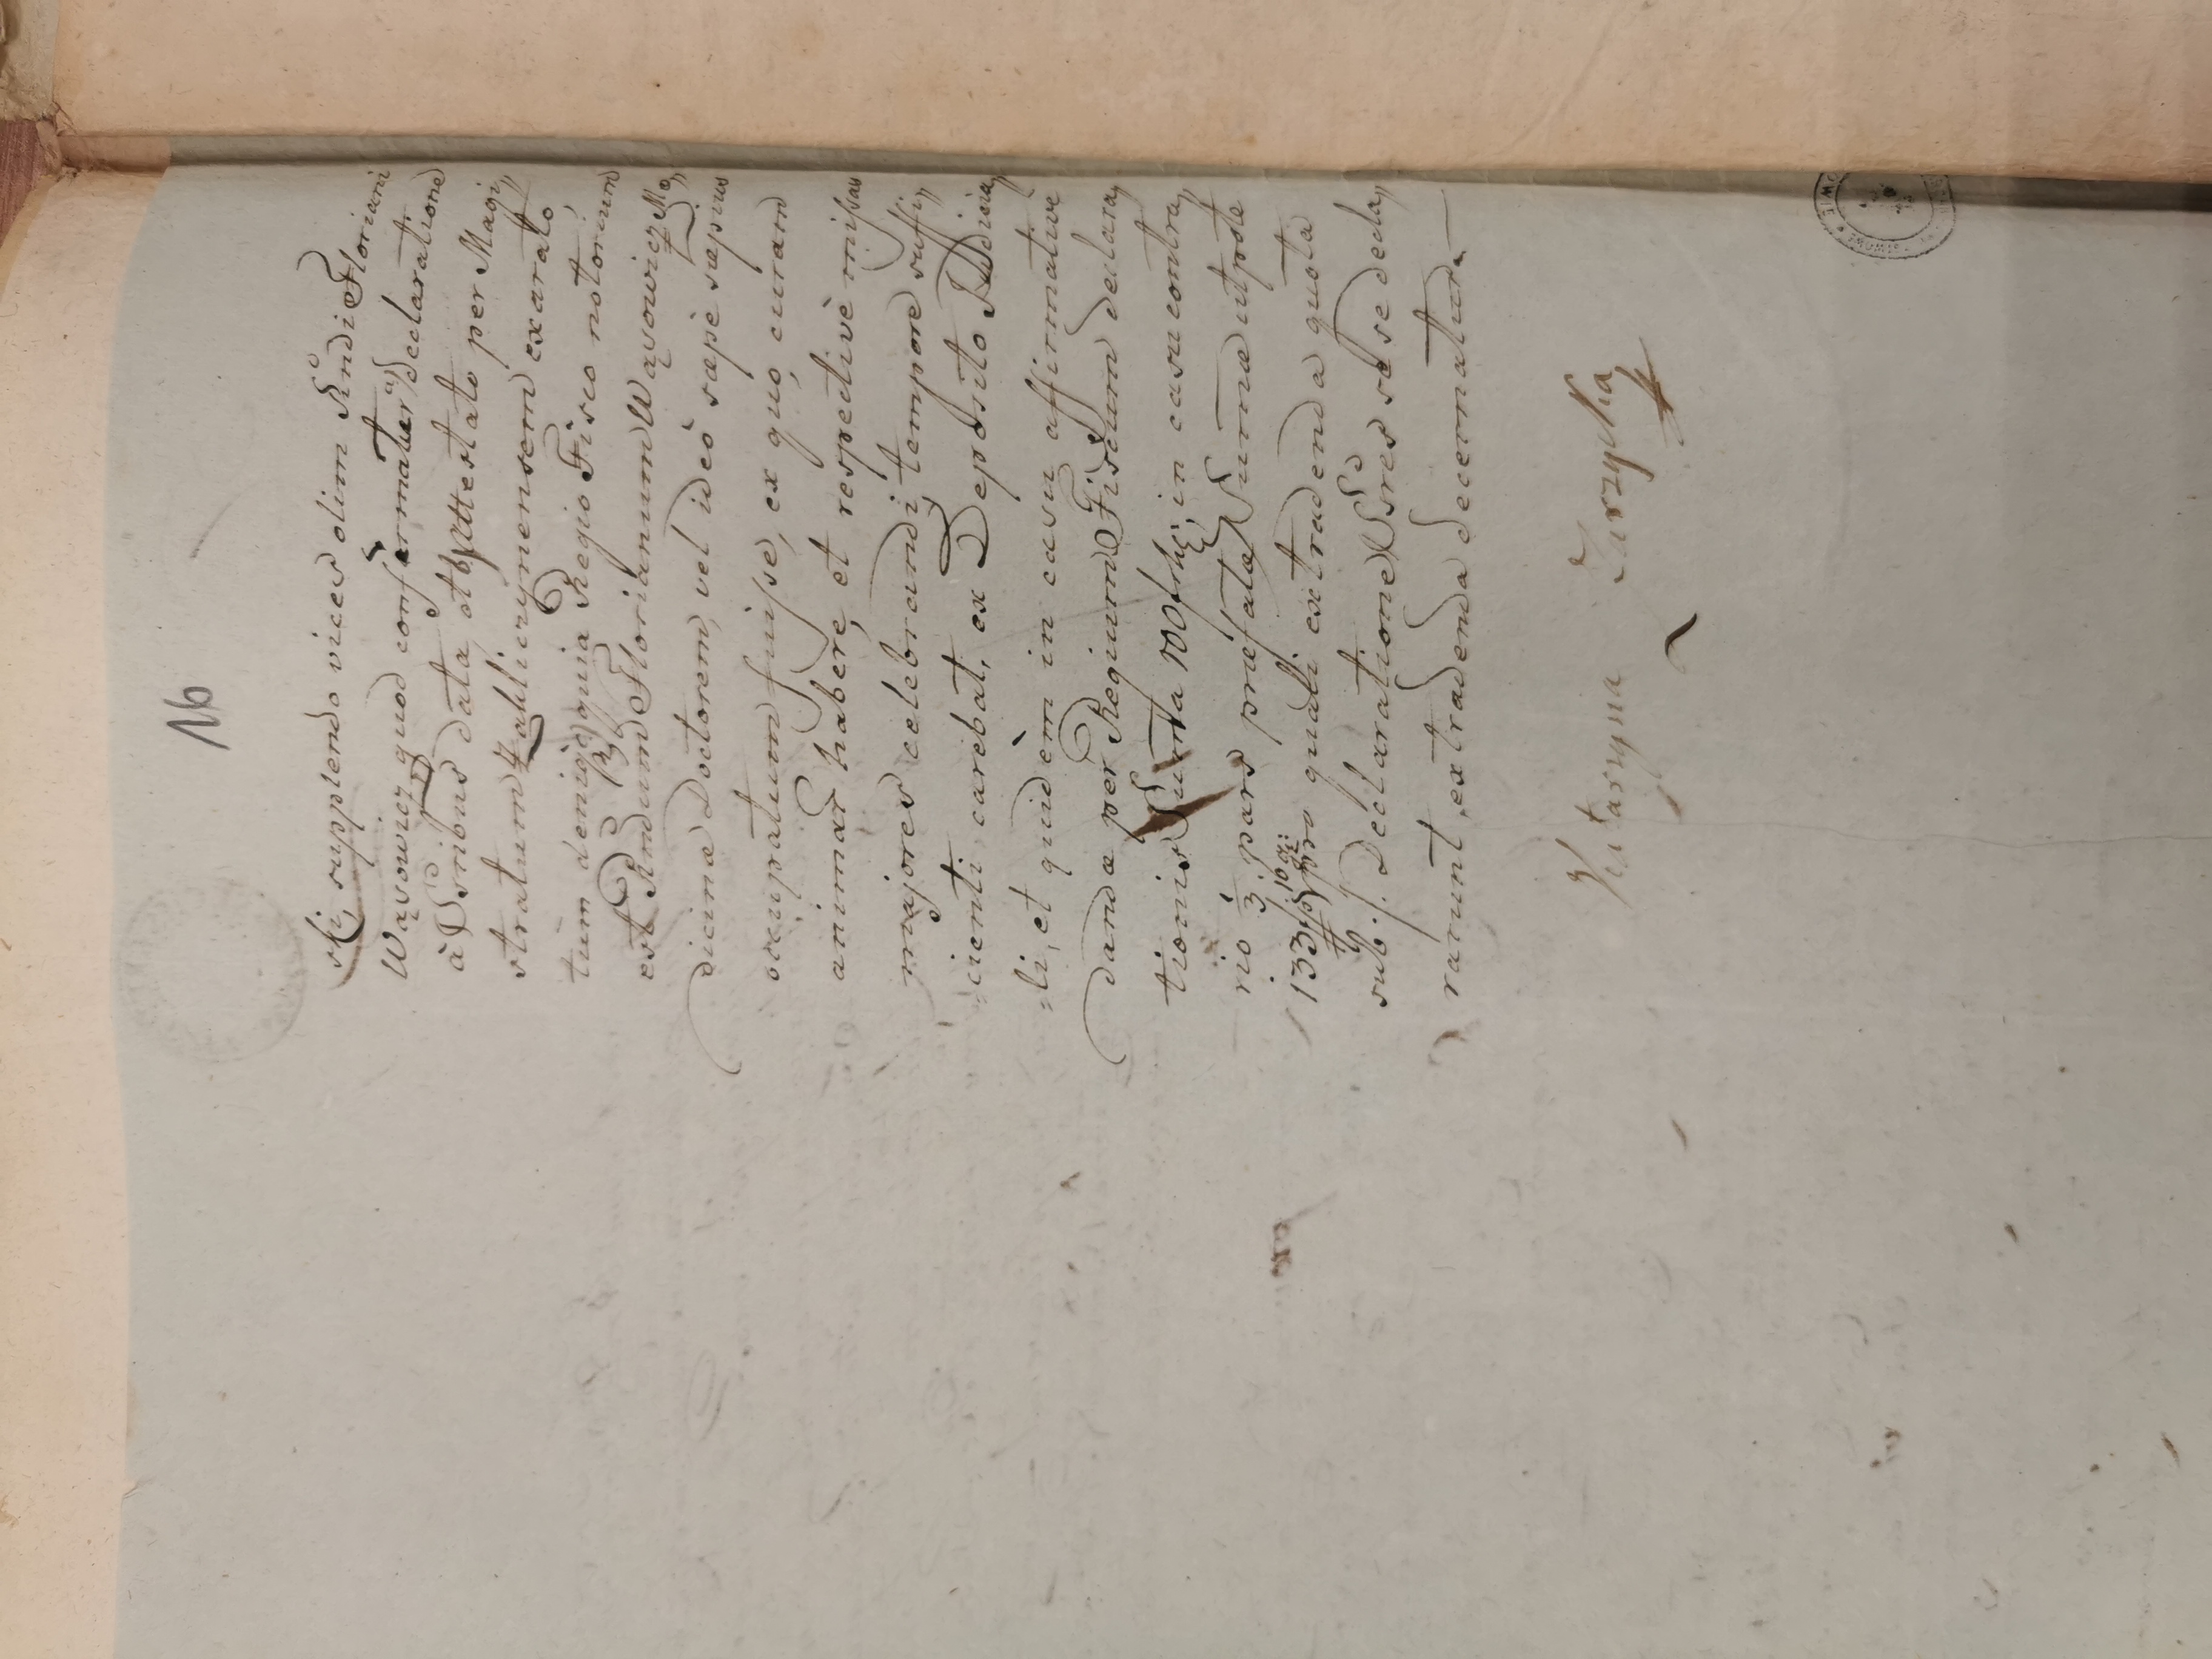 16
ski, supplendo vices olim Rndi Floriani
Wąsowicz quod confirmatur a) declaratione
à SSribus data et b) Attestato per Magi„
stratum Zakliczynensem exarato,
tùm demiò c) quia Regio Fisco notorium
est Rndum Florianum Wąsowicz Me„
dicinæ Doctorem, vel ideò sæpè sæpius
occupatum fuisse, ex quo, curam
animar habere, et respectivè missas
majores celebrandi, tempore suffi„
„cienti carebat, ex Deposito Judicia„
„li, et quidèm in casu affirmativè
dandæ per Regium Fiscum declara„
tionis Summa 100 frh: in casu contra„
rio 1/3 pars præfatæ Summæ utpote
133 10 pro quali extradenda quota
sub ·/· Declaratione SSres se se deda„
rarunt, extradenda decernatur. —
Katarzyna Zurzycka